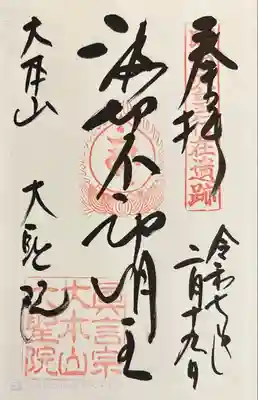 奉拝
令和七年
二月十九日
波切不動明王
大本山 大聖院
真言宗
大本山
大聖院